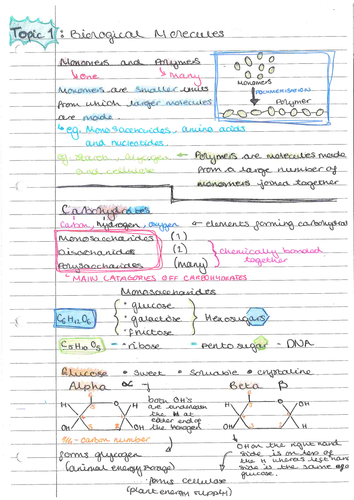 Topic 1: Biological Molecules
Monomers and Polymers
one many
Monomers are smaller units
from which larger molecules
are made.
eg. Monosaccharides, amino acids
and nucleotides.
Monomers
POLYMERISATION
Polymer
eg. Starch, glycogen
and cellulose
Polymers are molecules made
from a large number of
monomers joined together
Carbohydrates
Carbon, hydrogen, oxygen
elements forming carbohydrat
Monosaccharides (1)
Disaccharides (2)
Polysaccharides (many)
chemically bonded
together
MAIN CATAGORIES OFF CARBOHYDRATES
Monosaccharides
C6H12O6
• glucose
• galactose
• fructose
Hexosugars
C5H10O5 • ribose - pentosugar - DNA
Glucose • sweet • soluable • crystaline
Alpha α
Beta β
both OH's
are underneath
the H at
either end of
the hexagon
H H
OH OH
H OH
OH H
1/4 - carbon number
forms glycogen
(animal energy storage)
OH on the right hand
side is on top of
the H whereas left hand
side is the same as α
glucose.
forms cellulose
(plant energy